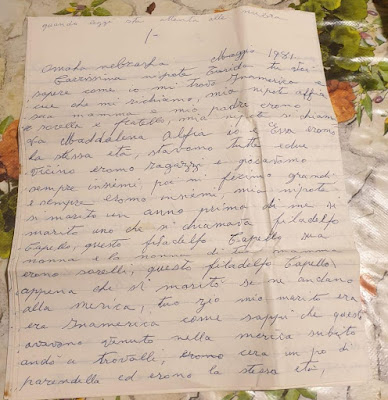 quando leggi stai attenta alle
1-
Omaha nebraska Maggio 1981
Carissima nipota
sapere come io mi trovo Inamerica e
che mi richiamo, mia nipota Alfia
sua mamma mio padre erono
sorella e fratelli, mia nipota si chiama
La Maddalena Alfia io e Essa eromo
la stessa età, stavomo tutte edue
vicino eromo ragazzi e gocavimo
sempre insiemi, poi ni fecimo grandi
e sempre eromo insiemi, mia nipota
si marito un anno prima di me si
marito uno che si chiamava filadelfo
Capello, questo filadelfo Capello sua
nonna e la nonna di
erono sorelli, questo filadelfo Capello
appena che si marito se ne andano
alla Merica, tuo zio mio marito era
ere Inamerica come sappi che questi
avavano venuto nella merica subito
andò a trovalli, eromo cera un po di
parendella ed erono la stessa età,